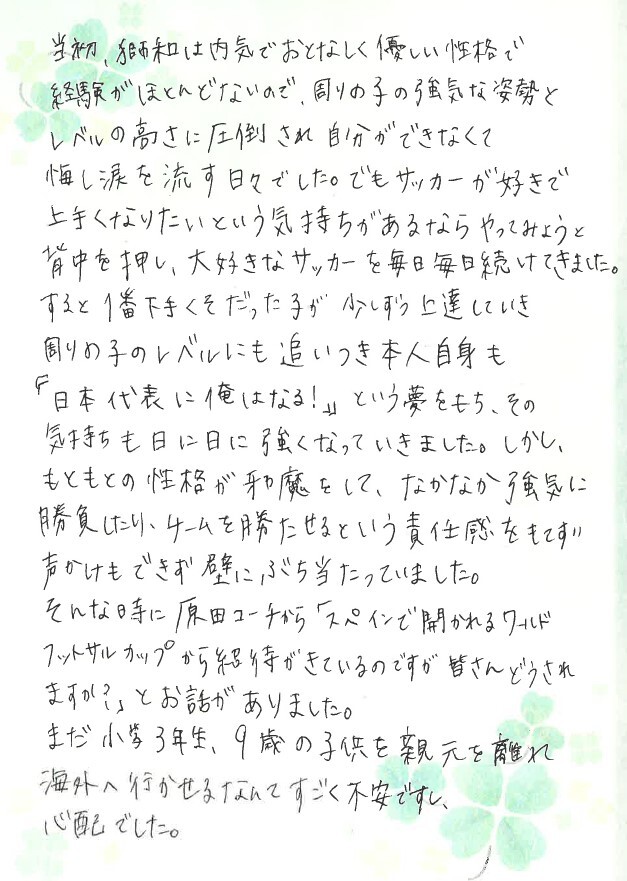 当初、獅和は内気でおとなしく優しい性格で
経験がほとんどないので、周りの子の強気な姿勢と
レベルの高さに圧倒され自分ができなくて
悔し涙を流す日々でした。でもサッカーが好きで
上手くなりたいという気持ちがあるならやってみようと
背中を押し、大好きなサッカーを毎日毎日続けてきました。
すると1番下手くそだった子が少しずつ上達していき
周りの子のレベルにも追いつき本人自身も
『日本代表に俺はなる!』という夢をもち、その
気持ちも日に日に強くなっていきました。しかし、
もともとの性格が邪魔をして、なかなか強気に
勝負したり、チームを勝たせるという責任感をもてず
声かけもできず壁にぶち当たっていました。
そんな時に原田コーチから「スペインで開かれるワールド
フットサルカップから招待がきているのですが皆さんどうされ
ますか?」とお話がありました。
まだ小学3年生、9歳の子供を親元を離れ
海外へ行かせるなんてすごく不安ですし、
心配でした。